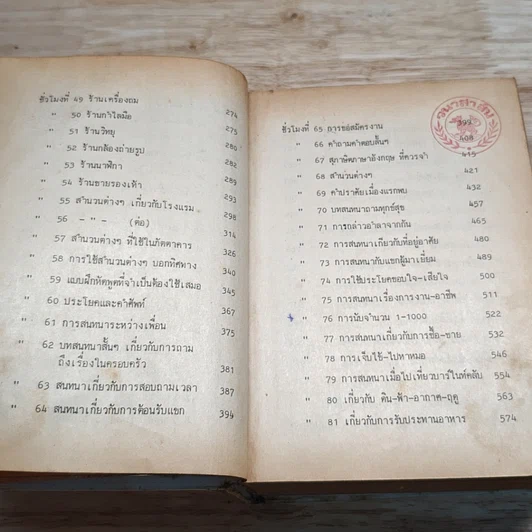 ชั่วโมงที่ 49 ร้านเครื่องถม 274
" 50 ร้านกำไลมือ 275
" 51 ร้านวิทยุ 280
" 52 ร้านกล้องถ่ายรูป 282
" 53 ร้านนาฬิกา 289
" 54 ร้านขายรองเท้า 293
" 55 สำนวนต่างๆ เกี่ยวกับโรงแรม 298
" 56 - " - (ต่อ) 314
" 57 สำนวนต่างๆ ที่ใช้ในภัตตาคาร 326
" 58 การใช้สำนวนต่างๆ บอกทิศทาง 340
" 59 แบบฝึกหัดพูดที่จำเป็นต้องใช้เสมอ 345
" 60 ประโยคและคำศัพท์ 367
" 61 การสนทนาระหว่างเพื่อน 375
" 62 บทสนทนาสั้นๆ เกี่ยวกับการถาม
ถึงเรื่องในครอบครัว 381
" 63 สนทนาเกี่ยวกับการสอบถามเวลา 387
" 64 สนทนาเกี่ยวกับการต้อนรับแขก 394
ชั่วโมงที่ 65 การขอสมัครงาน 399
" 66 คำถามคำตอบสั้นๆ 408
" 67 สุภาษิตภาษาอังกฤษ ที่ควรจำ 415
" 68 สำนวนต่างๆ 421
" 69 คำปราศัยเมื่อแรกพบ 432
" 70 บทสนทนาถามทุกข์สุข 457
" 71 การกล่าวอำลาจากกัน 465
" 72 การสนทนาเกี่ยวกับที่อยู่อาศัย 480
" 73 การสนทนากับแขกผู้มาเยี่ยม 489
" 74 การใช้ประโยคขอบใจ-เสียใจ 500
" 75 การสนทนาเรื่องการงาน-อาชีพ 511
" 76 การนับจำนวน 1-1000 522
" 77 การสนทนาเกี่ยวกับการซื้อ-ขาย 532
" 78 การเจ็บไข้-ไปหาหมอ 546
" 79 การสนทนาเมื่อไปเที่ยวบาร์ไนท์คลับ 554
" 80 เกี่ยวกับ ดิน-ฟ้า-อากาศ-ฤดู 563
" 81 เกี่ยวกับการรับประทานอาหาร 574